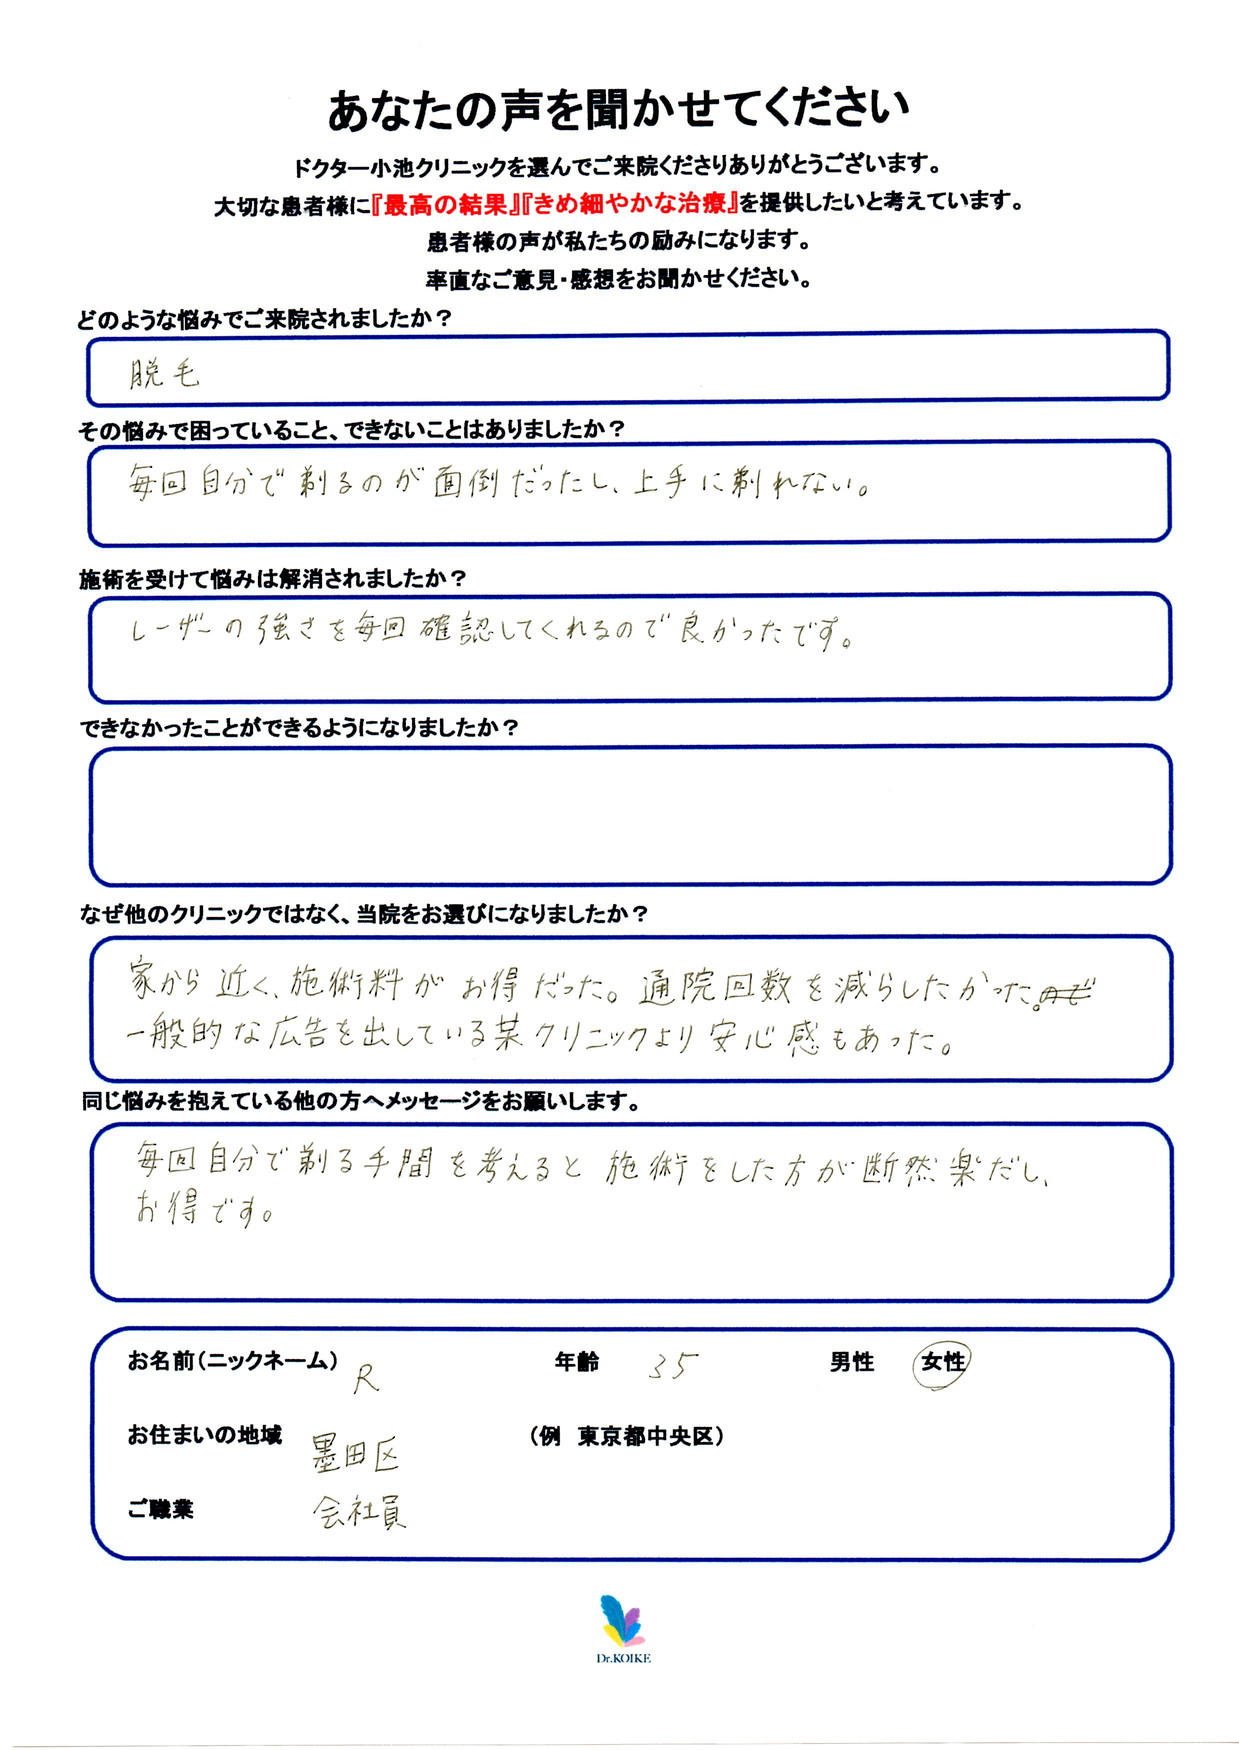 あなたの声を聞かせてください
ドクター小池クリニックを選んでご来院くださりありがとうございます。
大切な患者様に『最高の結果』『きめ細やかな治療』を提供したいと考えています。
患者様の声が私たちの励みになります。
率直なご意見・感想をお聞かせください。
どのような悩みでご来院されましたか？
脱毛
その悩みで困っていること、できないことはありましたか？
毎回自分で剃るのが面倒だったし、上手に剃れない。
施術を受けて悩みは解消されましたか？
レーザーの強さを毎回確認してくれるので良かったです。
できなかったことができるようになりましたか？
なぜ他のクリニックではなく、当院をお選びになりましたか？
家から近く、施術料がお得だった。通院回数を減らしたかった。ので
一般的な広告を出している某クリニックより安心感もあった。
同じ悩みを抱えている他の方へメッセージをお願いします。
毎回自分で剃る手間を考えると施術をした方が断然楽だし、
お得です。
お名前（ニックネーム） R 年齢 35 男性 女性
お住まいの地域 墨田区 （例 東京都中央区）
ご職業 会社員
Dr.KOIKE